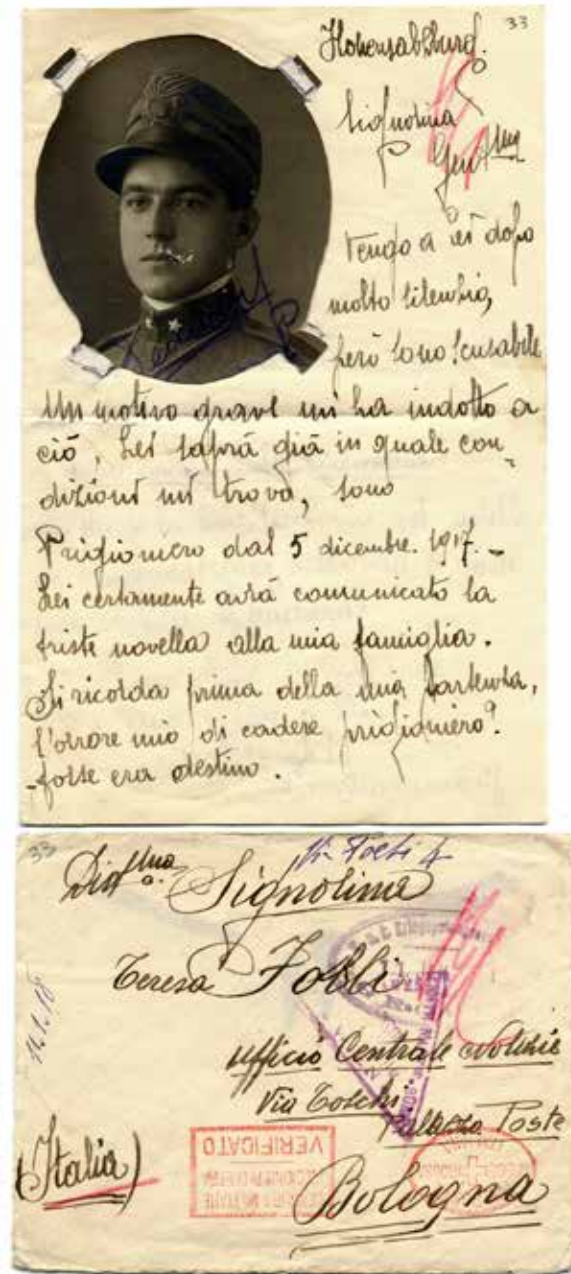 33
Hohensalzburg.
Signorina
Gent.ma
Vengo a lei dopo
molto silenzio,
però sono scusabile
Un motivo grave mi ha indotto a
ciò, Lei saprà già in quale con-
dizioni mi trovo, sono
Prigioniero dal 5 dicembre. 1917. -
Lei certamente avrà comunicato la
triste novella alla mia famiglia.
Si ricorda prima della mia partenza,
l'orrore mio di cadere prigioniero?
-forse era destino.
33
Dist.ma Signorina
Teresa
Ufficio Centrale Notizie
Via Toschi
Palazzo Poste
(Italia)
Bologna
VERIFICATO